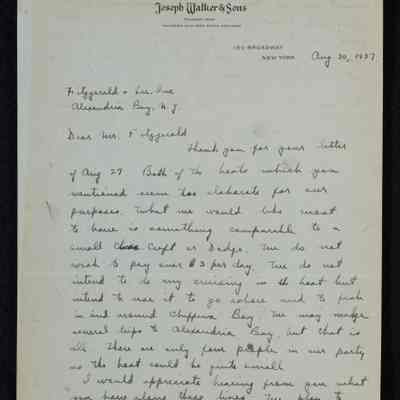 Joseph Walker & Sons
120 BROADWAY
NEW YORK
Aug 30, 1937
Fitzgerald & Lee, Inc
Alexandria Bay, N.Y.
Dear Mr. Fitzgerald
Thank you for your letter
of Aug 27. Both of the boats which you
mentioned seem too elaborate for our
purposes. What we would like most
to have is something comparable to a
small Chris Craft or Dodge. We do not
wish to pay over $3 per day. We do not
intend to do any cruising in the boat but
intend to use it to go ashore and to fish
in and around Chippewa Bay. We may make
several trips to Alexandria Bay, but that is
all. There are only four people in our party
so the boat could be quite small.
I would appreciate hearing from you what
you have along these lines. We plan to